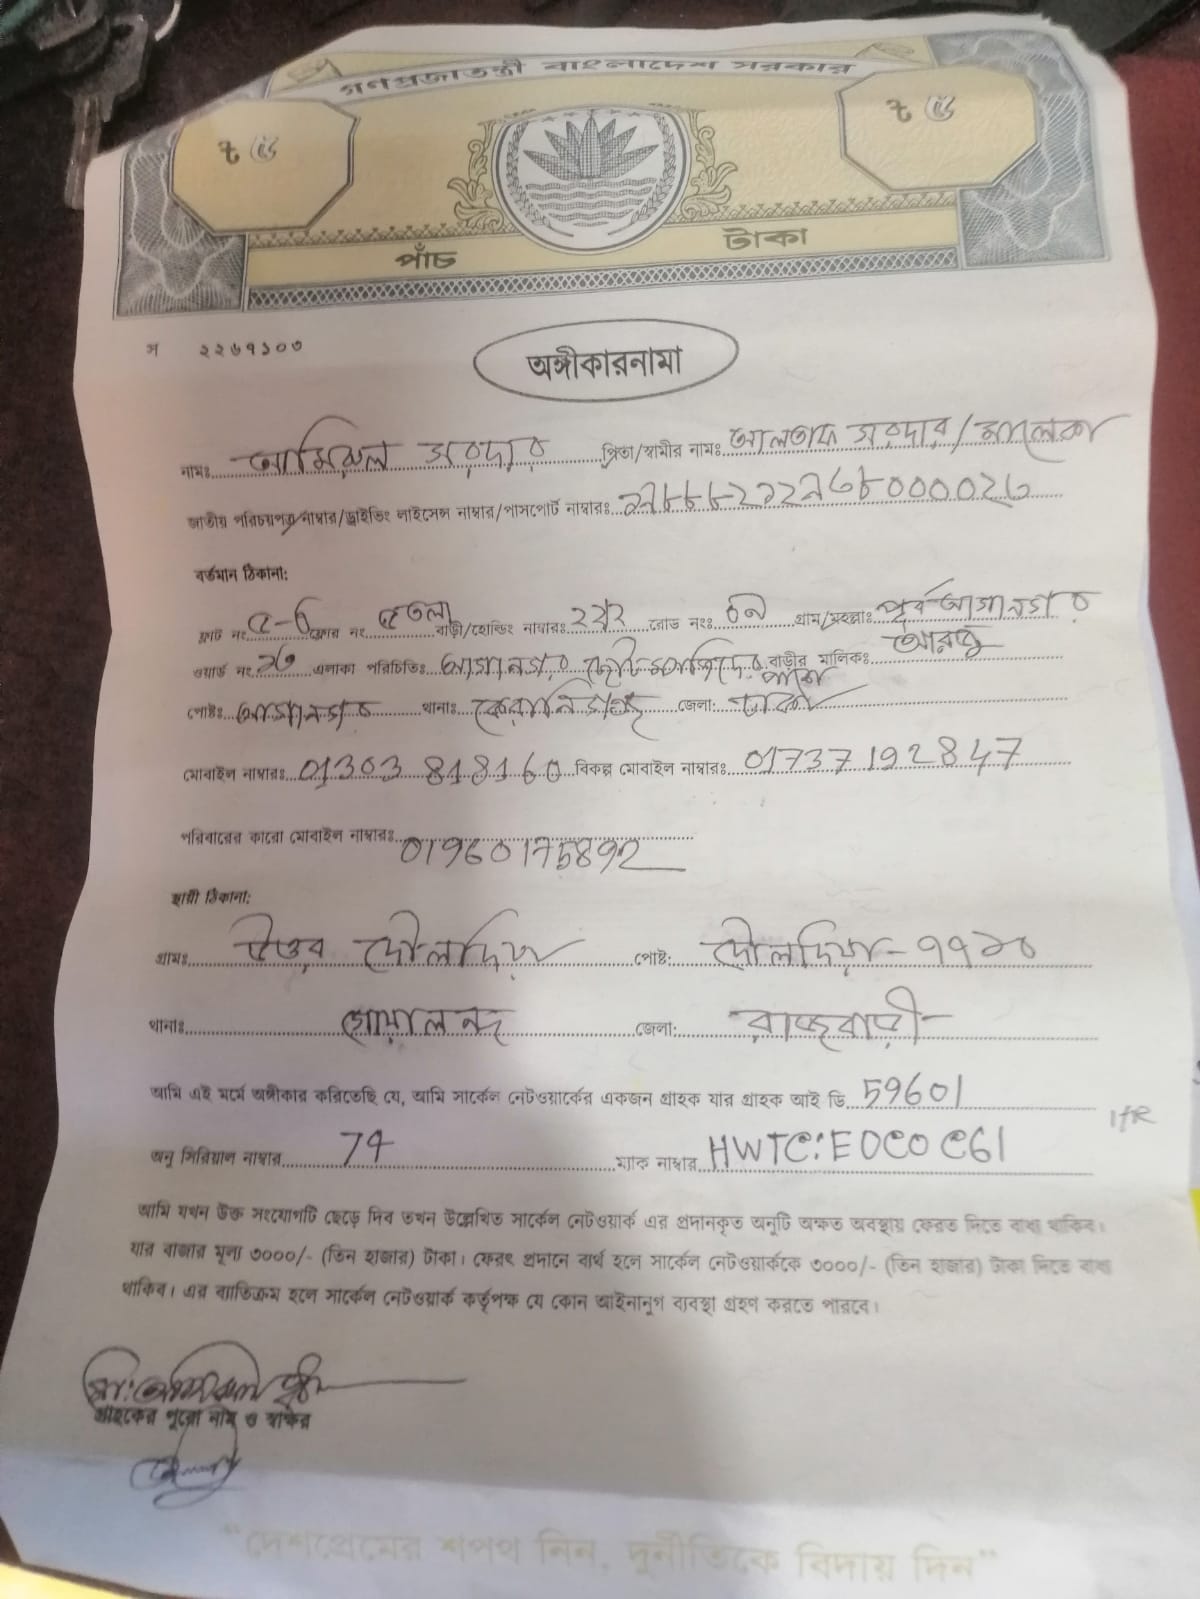 গণপ্রজাতন্ত্রী বাংলাদেশ সরকার
৳ ৫ ৳ ৫
পাঁচ টাকা
স ২২৬৭১০৩
অঙ্গীকারনামা
নামঃ সরদার পিতা/স্বামীর নামঃ আলতাফ সরদার/মালেকা
জাতীয় পরিচয়পত্র নাম্বার/ড্রাইভিং লাইসেন্স নাম্বার/পাসপোর্ট নাম্বারঃ
বর্তমান ঠিকানা:
ফ্লাট নং ফ্লোর নং ৫তলা বাড়ী/হোল্ডিং নাম্বারঃ রোড নংঃ গ্রাম/মহল্লাঃ পূর্ব আগানগর
ওয়ার্ড নং এলাকা পরিচিতিঃ আগানগর মসজিদের পাশে বাড়ীর মালিকঃ
পোষ্টঃ আগানগর থানাঃ কেরানিগঞ্জ জেলা: ঢাকা
মোবাইল নাম্বারঃ 01303 818160 বিকল্প মোবাইল নাম্বারঃ 01737192847
পরিবারের কারো মোবাইল নাম্বারঃ 01960175892
স্থায়ী ঠিকানা:
গ্রামঃ উত্তর দৌলদিয়া পোষ্ট: দৌলদিয়া- ৭৭১০
থানাঃ গোয়ালন্দ জেলা: রাজবাড়ী
আমি এই মর্মে অঙ্গীকার করিতেছি যে, আমি সার্কেল নেটওয়ার্কের একজন গ্রাহক যার গ্রাহক আই ডি 59601
অনু সিরিয়াল নাম্বার 74 ম্যাক নাম্বার HWTC:E0C0C61
আমি যখন উক্ত সংযোগটি ছেড়ে দিব তখন উল্লেখিত সার্কেল নেটওয়ার্ক এর প্রদানকৃত অনুটি অক্ষত অবস্থায় ফেরত দিতে বাধ্য থাকিব।
যার বাজার মূল্য ৩০০০/- (তিন হাজার) টাকা। ফেরৎ প্রদানে ব্যর্থ হলে সার্কেল নেটওয়ার্ককে ৩০০০/- (তিন হাজার) টাকা দিতে বাধ্য
থাকিব। এর ব্যাতিক্রম হলে সার্কেল নেটওয়ার্ক কর্তৃপক্ষ যে কোন আইনানুগ ব্যবস্থা গ্রহণ করতে পারবে।
গ্রাহকের পুরো নাম ও স্বাক্ষর
“দেশপ্রেমের শপথ নিন, দুর্নীতিকে বিদায় দিন”